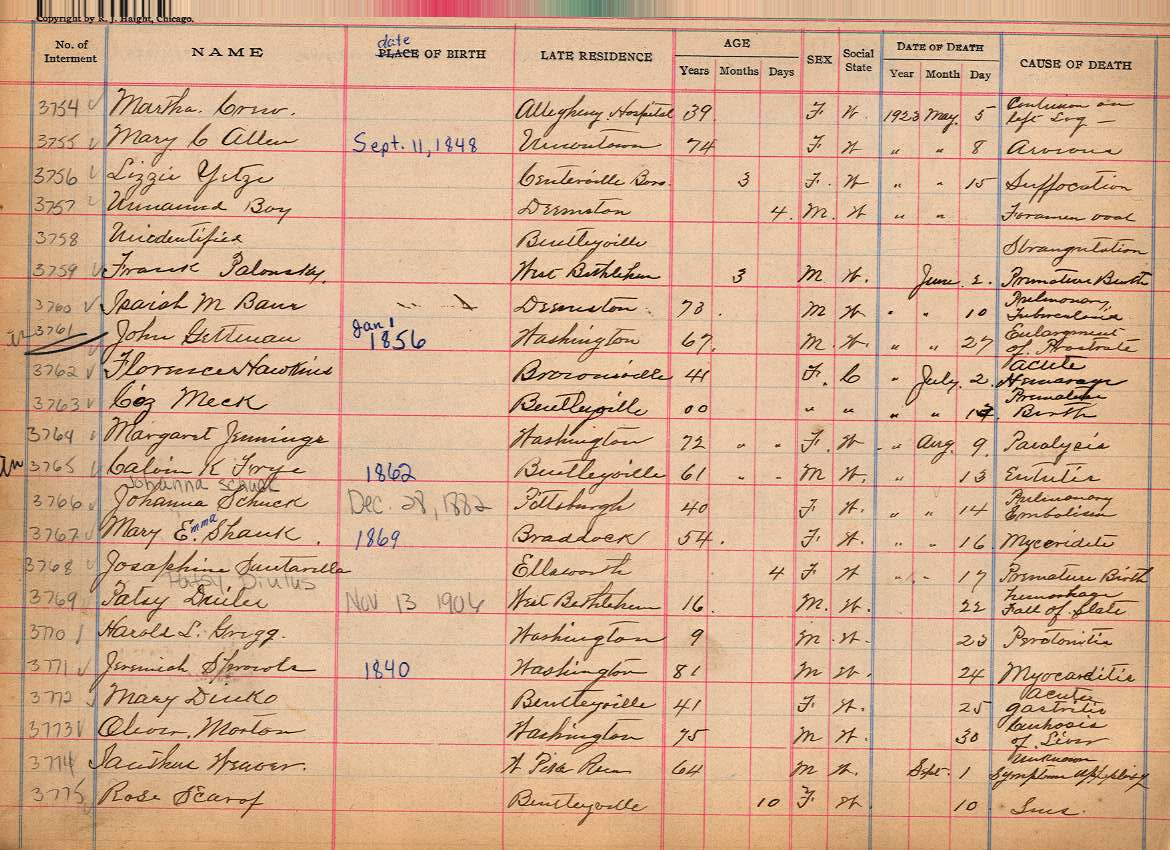 Copyright by R. J. Haight, Chicago.
No. of Interment NAME date PLACE OF BIRTH LATE RESIDENCE AGE Years Months Days SEX Social State DATE OF DEATH Year Month Day CAUSE OF DEATH
3754 Martha Crow. Allegheny Hospital 39 F W. 1923 May. 5 Contusion on left Leg —
3755 Mary C Allen Sept. 11, 1848 Uniontown 74 F W " " 8
3756 Lizzie Centerville Boro. 3 F. W " " 15 Suffocation
3757 Unnamed Boy Deemston 4. M. W " " Foramen
3758 Unidentified Bentleyville Strangulation
3759 Frank Palonsky. West Bethlehem 3 M W. June 2. Premature Birth
3760 Isaiah M Bane " " Deemston 73. M W. " " 10 Pulmonary
3761 John Gettman Jan 1 1856 Washington 67. M. W. " " 27 Enlargment of Prostrate
3762 Florence Hawkins Brownsville 41 F. C " July. 2. acute
3763 Meck Bentleyville 00 " " " " Premature Birth
3764 Margaret Jennings Washington 72 " " F. W. " Aug. 9. Paralysis
3765 Calvin K Frye 1862 Bentleyville 61 " " M. W. " 13
Johanna Schuck
3766 Johanna Schuck Dec. 28, 1882 Pittsburgh 40 F W. " " 14 Pulmonary Embolism
3767 Mary E. Emma Shank. 1869 Braddock 54. F W. " " 16
3768 Josephine Ellsworth 4 F W " " 17 Premature Birth
Patsy Diulus
3769 Patsy Nov 13 1906 West Bethlehem 16. M. W. 22 hemorhage Fall of Slate
3770 Harold L. Grigg. Washington 9 M. W. 23 Peritonitis
3771 Jeremiah Sprowls 1840 Washington 81 M W. 24 Myocarditis
3772 Mary Dinko Bentleyville 41 F W. 25 acute gastritis
3773 Oliver. Morton Washington 75 M W. 30 of Liver
3774 Weaver. W Pike Run 64 M W. Sept. 1 unknown
3775 Rose Bentleyville 10 F W. 10.